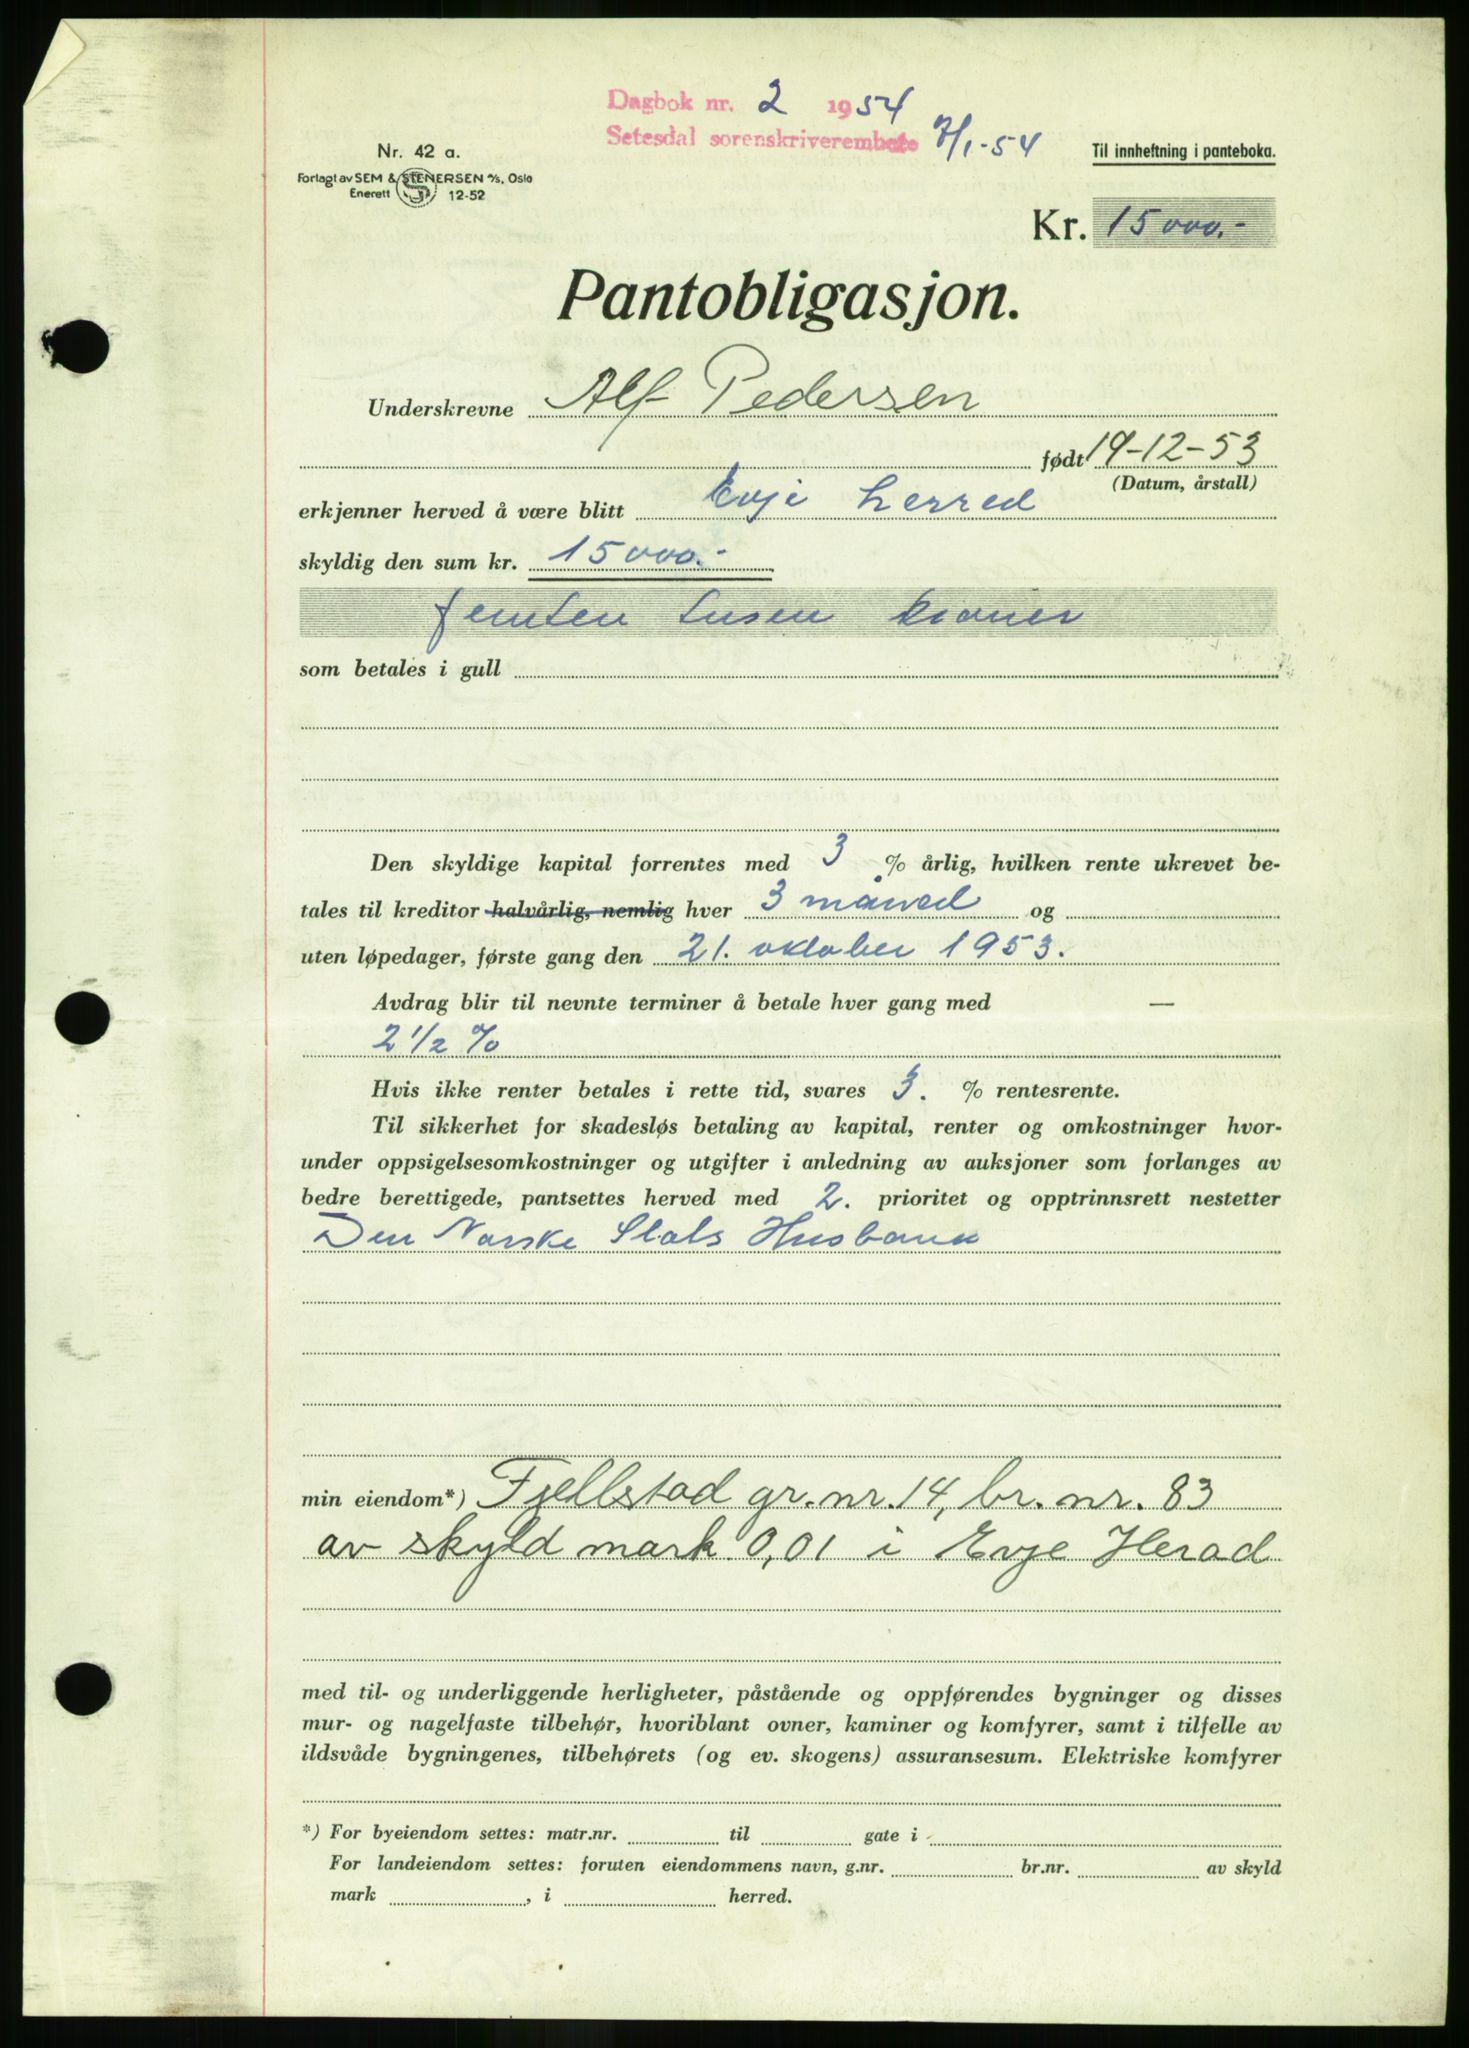 Dagbok nr. 2 1954
Setesdal sorenskriverembete 7/1-54
Nr. 42 a.
Forlagt av SEM & STENERSEN A/S, Oslo
Enerett 12-52
Til innheftning i panteboka.
Kr. 15000.-
Pantobligasjon.
Underskrevne Alf Pedersen
født 19-12-53
(Datum, årstall)
erkjenner herved å være blitt Evje herred
skyldig den sum kr. 15000.-
femten tusen kroner
som betales i gull
Den skyldige kapital forrentes med 3 % årlig, hvilken rente ukrevet be-
tales til kreditor halvårlig, nemlig hver 3 måned og
uten løpedager, første gang den 21. oktober 1953.
Avdrag blir til nevnte terminer å betale hver gang med —
2 1/2 %
Hvis ikke renter betales i rette tid, svares 3. % rentesrente.
Til sikkerhet for skadesløs betaling av kapital, renter og omkostninger hvor-
under oppsigelsesomkostninger og utgifter i anledning av auksjoner som forlanges av
bedre berettigede, pantsettes herved med 2. prioritet og opptrinnsrett nestetter
Den Norske Stats Husbank
min eiendom*) Fjellstad gr. nr. 14, br. nr. 83
av skyld mark 0,01 i Evje Herad
med til- og underliggende herligheter, påstående og oppførendes bygninger og disses
mur- og nagelfaste tilbehør, hvoriblant ovner, kaminer og komfyrer, samt i tilfelle av
ildsvåde bygningenes, tilbehørets (og ev. skogens) assuransesum. Elektriske komfyrer
*) For byeiendom settes: matr.nr. til gate i
For landeiendom settes: foruten eiendommens navn, g.nr. br.nr. av skyld
mark , i herred.